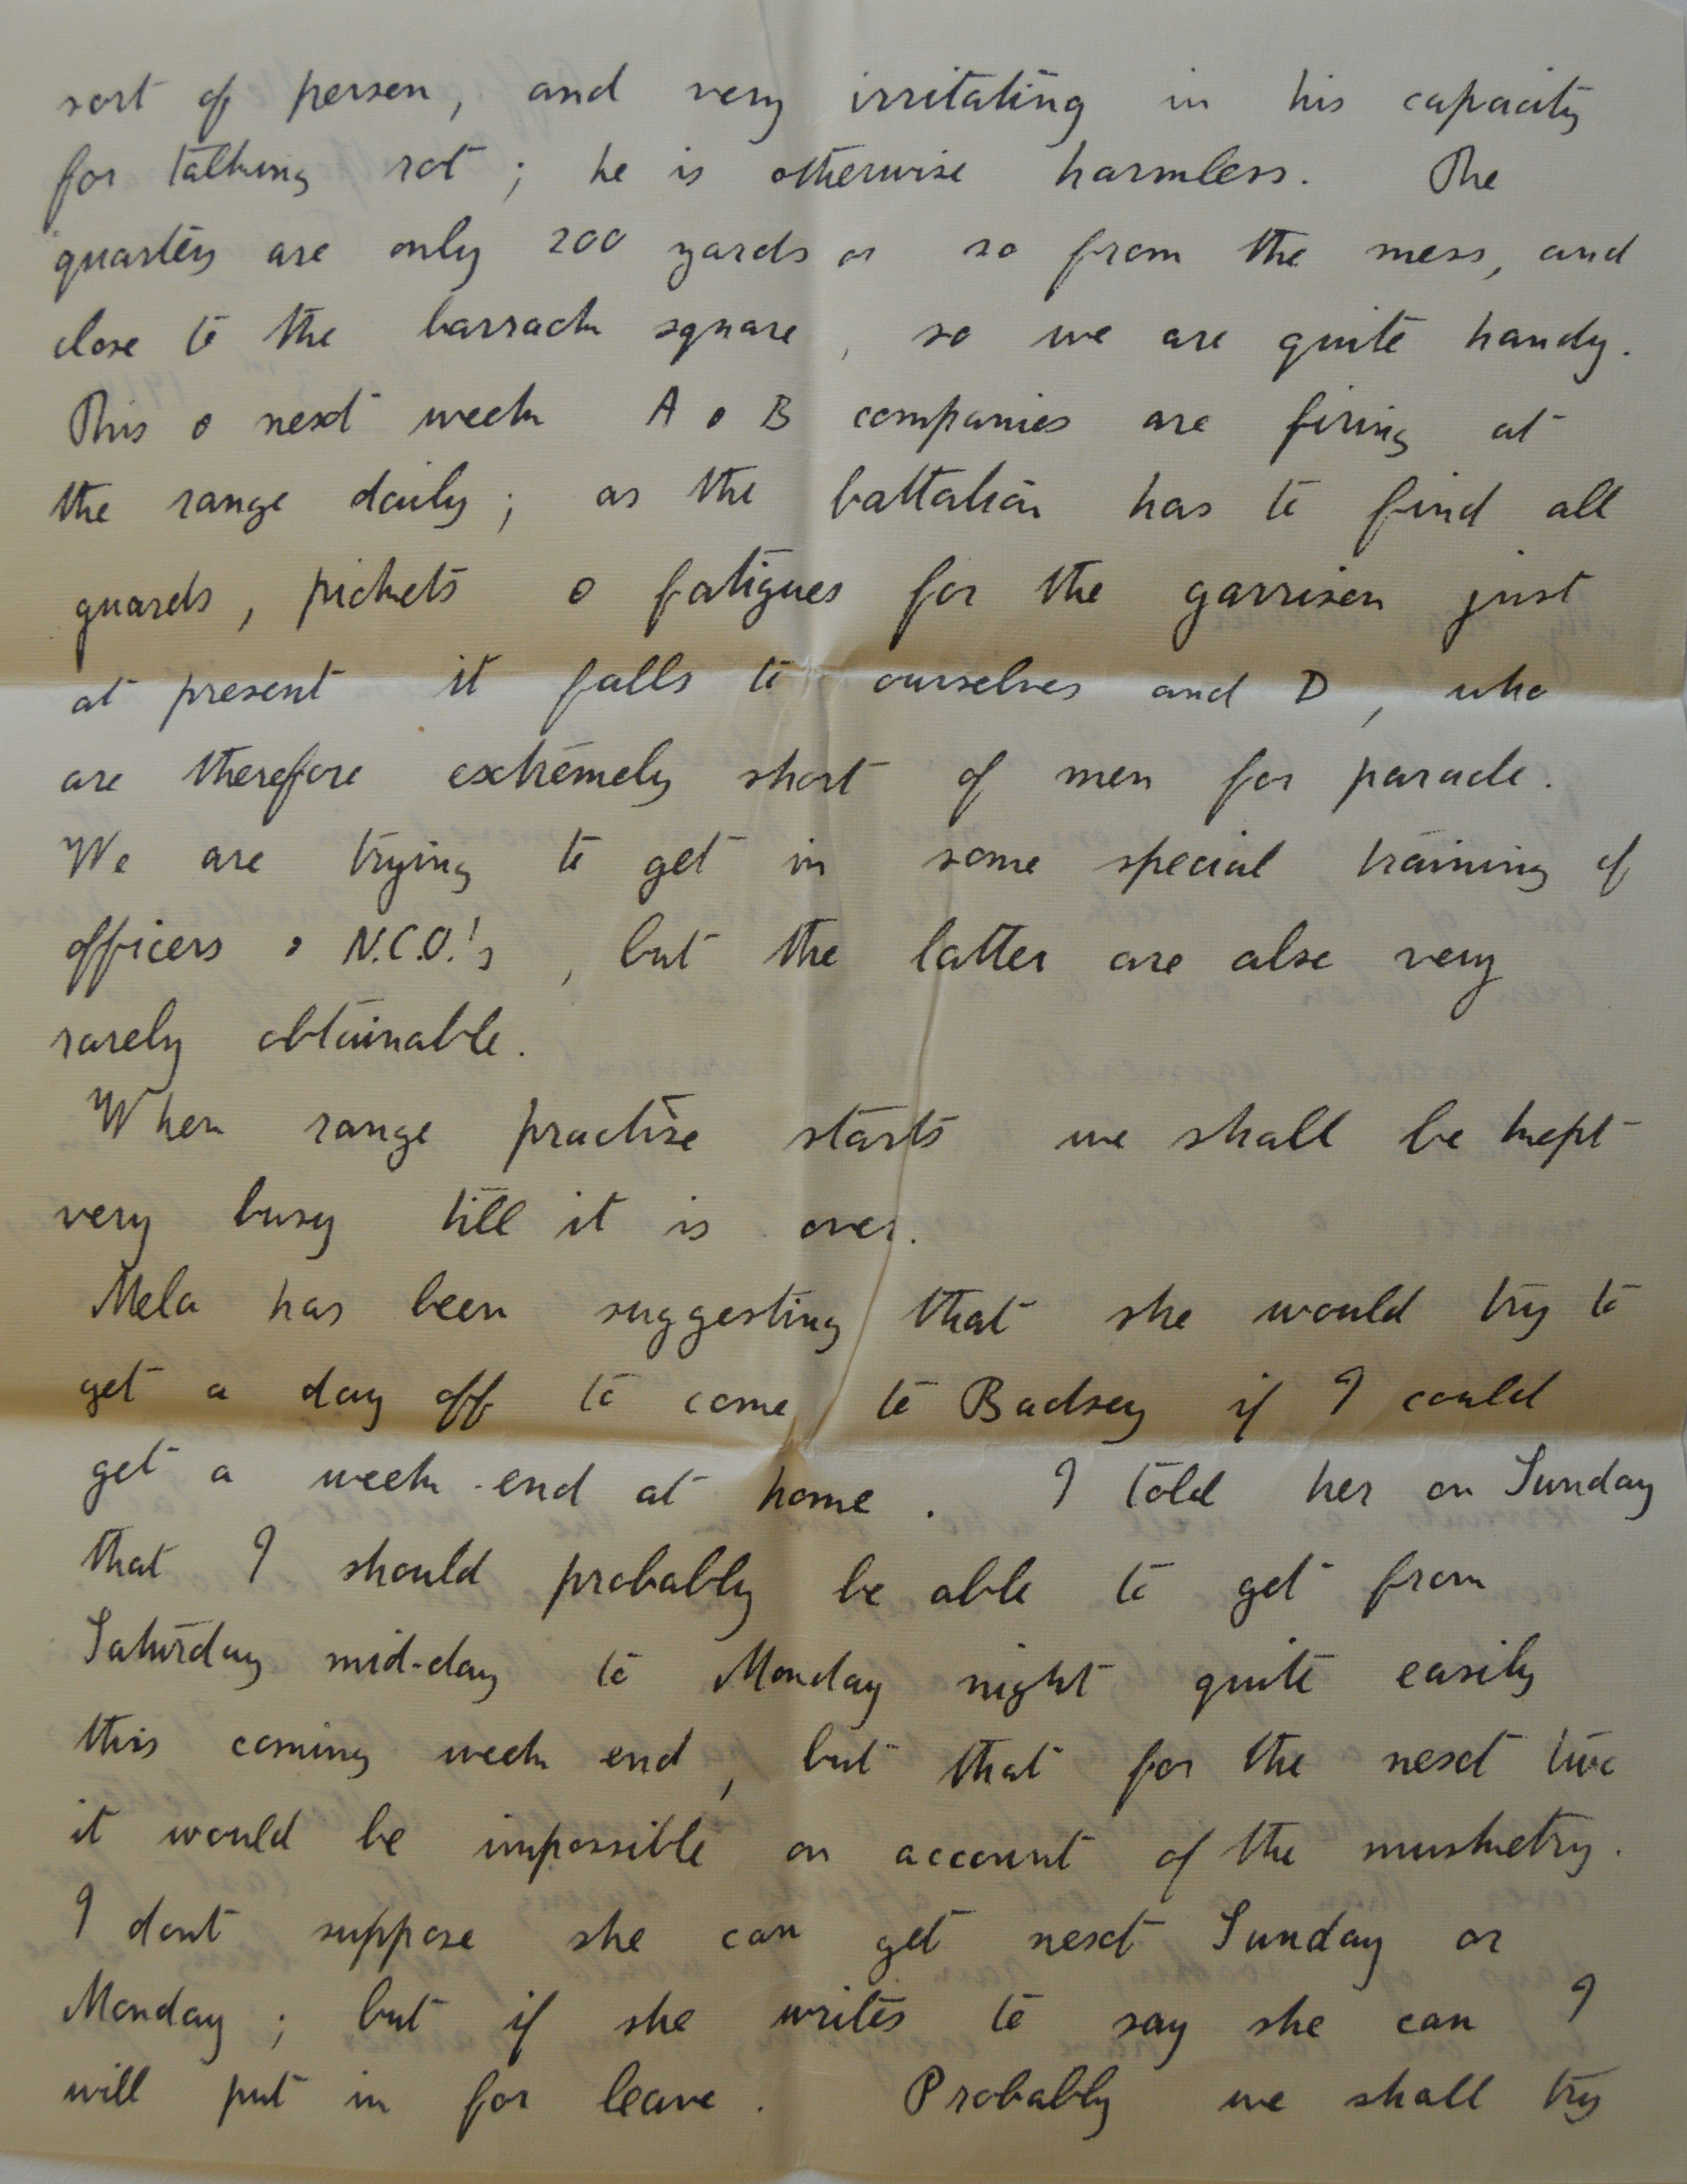 sort of person, and very irritating in his capacity
for talking rot; he is otherwise harmless. The
quarters are only 200 yards or so from the mess, and
close to the barrack square, so we are quite handy.
This & next week A & B companies are firing at
the range daily; as the battalion has to find all
guards, pickets & fatigues for the garrison just
at present it falls to ourselves and D, who
are therefore extremely short of men for parade.
We are trying to get in some special training of
officers & N.C.O.'s, but the latter are also very
rarely obtainable.
When range practise starts we shall be kept
very busy till it is over.
Mela has been suggesting that she would try to
get a day off to come to Badsey if I could
get a week-end at home. I told her on Sunday
that I should probably be able to get from
Saturday mid-day to Monday night quite easily
this coming week end, but that for the next two
it would be impossible on account of the musketry.
I dont suppose she can get next Sunday or
Monday; but if she writes to say she can I
will put in for leave. Probably we shall try